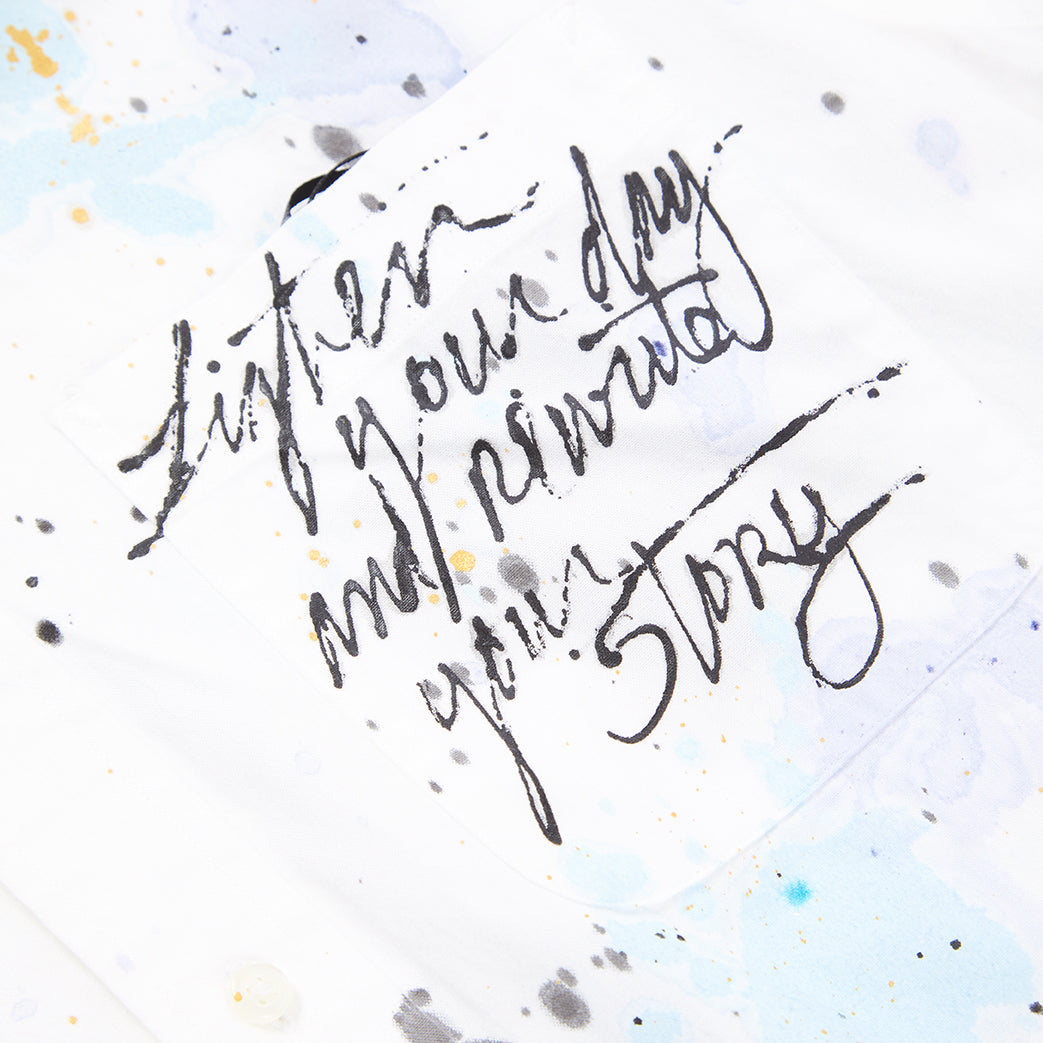 Listen
your day
and rewrite
your story